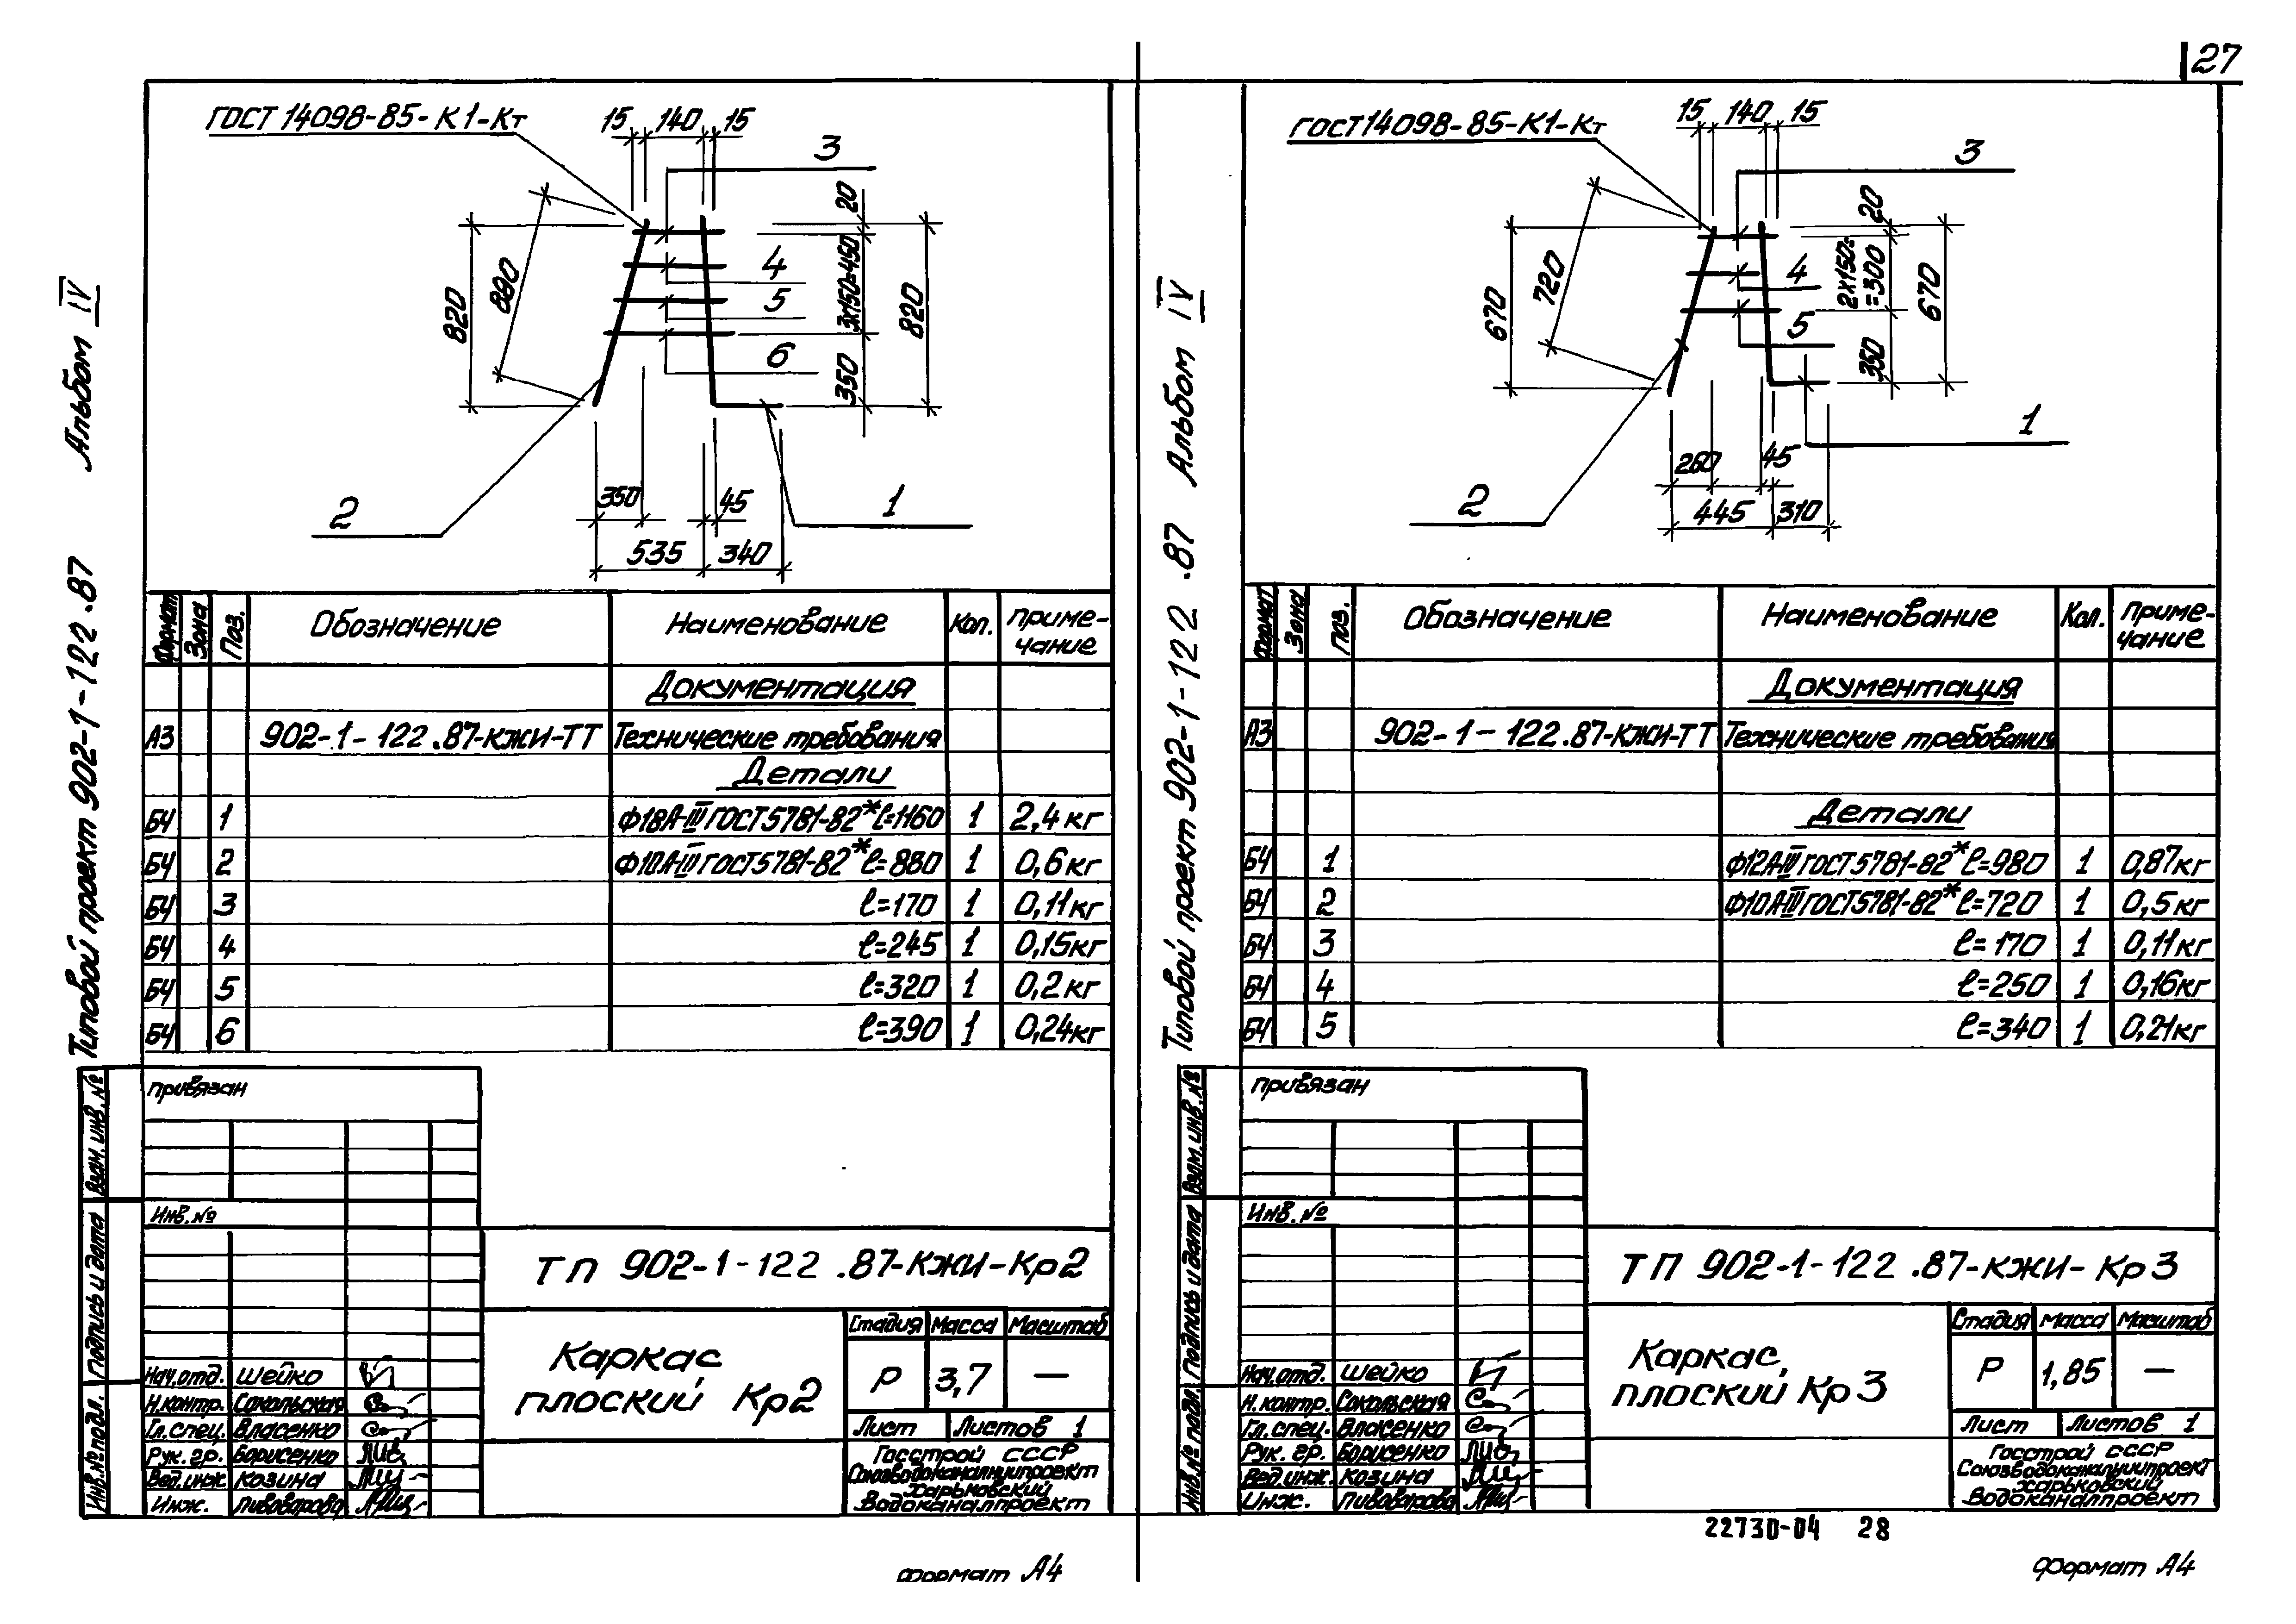 27
Типовой проект 902-1-122.87 Альбом IV
ГОСТ 14098-85-К1-Кт
15 140 15
3
20
4
5
6
3х150=450
350
820
880
820
2
350
45
1
535
340
Формат Зона Поз. Обозначение Наименование Кол. Приме-
чание
Документация
А3 902-1-122.87-КЖИ-ТТ Технические требования
Детали
БЧ 1 Ф18А-III ГОСТ5781-82* ℓ=1160 1 2,4кг
БЧ 2 Ф10А-III ГОСТ5781-82* ℓ=880 1 0,6кг
БЧ 3 ℓ=170 1 0,11кг
БЧ 4 ℓ=245 1 0,15кг
БЧ 5 ℓ=320 1 0,2кг
БЧ 6 ℓ=390 1 0,24кг
Привязан
Инв.№
Взам. инв.№
Подпись и дата
Инв.№ подл.
ТП 902-1-122.87-КЖИ-Кр2
Каркас
плоский Кр2
Стадия Масса Масштаб
Р 3,7 —
Лист Листов 1
Нач.отд. Шейко
Н.контр. Сокольская
Гл.спец. Власенко
Рук. гр. Борисенко
Вед.инж. Козина
Инж. Пивоварова
Госстрой СССР
Союзводоканалниипроект
Харьковский
Водоканалпроект
Формат А4
Типовой проект 902-1-122.87 Альбом IV
ГОСТ14098-85-К1-Кт
15 140 15
3
20
4
5
2х150=
=300
350
670
720
670
1
2
260
45
445
310
Формат Зона Поз. Обозначение Наименование Кол. Приме-
чание
Документация
А3 902-1-122.87-КЖИ-ТТ Технические требования
Детали
БЧ 1 Ф12А-III ГОСТ5781-82* ℓ=980 1 0,87кг
БЧ 2 Ф10А-III ГОСТ5781-82* ℓ=720 1 0,5кг
БЧ 3 ℓ=170 1 0,11кг
БЧ 4 ℓ=250 1 0,16кг
БЧ 5 ℓ=340 1 0,21кг
Привязан
Инв.№
Взам.инв.№
Подпись и дата
Инв.№ подл.
ТП 902-1-122.87-КЖИ-Кр3
Каркас
плоский Кр3
Стадия Масса Масштаб
Р 1,85 —
Лист Листов 1
Нач.отд. Шейко
Н.контр. Сокольская
Гл.спец. Власенко
Рук. гр. Борисенко
Вед.инж. Козина
Инж. Пивоварова
Госстрой СССР
Союзводоканалниипроект
Харьковский
Водоканалпроект
22730-04 28
Формат А4